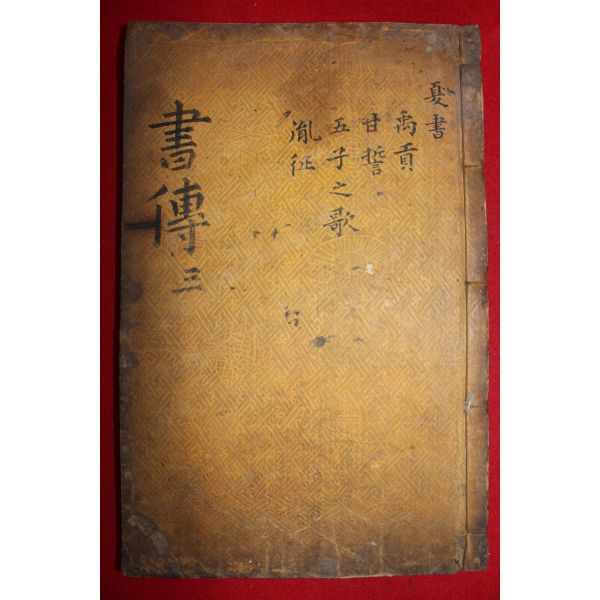 夏書
禹貢
甘誓
五子之歌
胤征
書傳 三